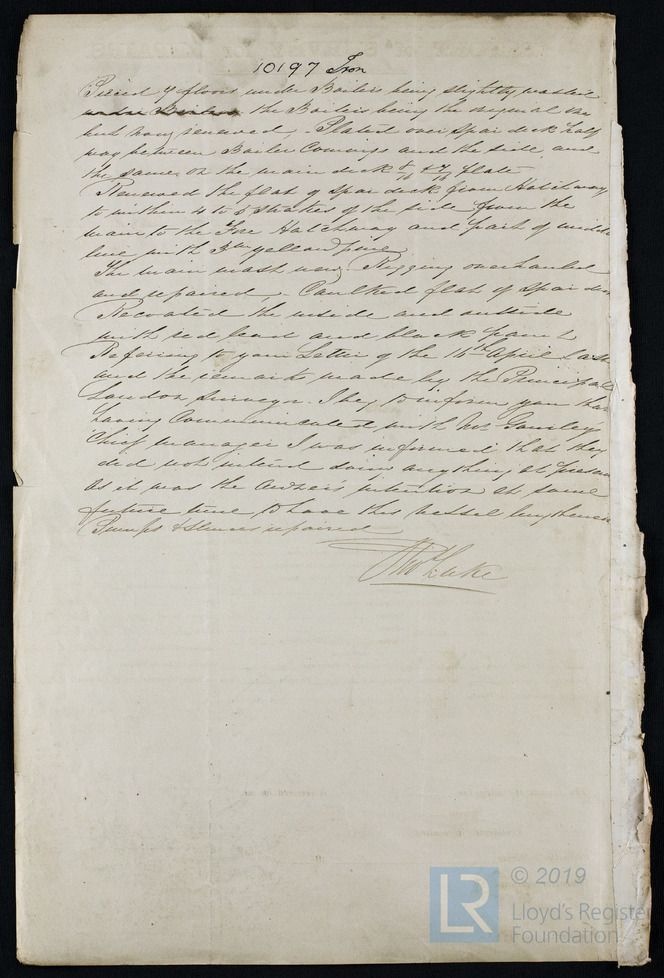 10197 Iron
Pieced 7 floors under Boilers being slightly wasted
under Boilers the Boilers being the original
but now renewed, - Plated over spar deck half
way between Boiler Comings and the side and
the same on the main deck 6/16 & 7/16 flate
Renewed the flat of spar deck from Hatchway
to within 4 to 6 strakes of the side from the
main to the Fore Hatchway and part of midde
line with 3 in yellow pine
The main mast new, Rigging overhauled
and repaired, - Caulked flat of spar dec
Recoated the inside and outside
with red lead and black paint
Referring to your Letter of the 16th April Last
and the remarks made by the Principal
London Surveyor. I beg to inform you that
having Communicated with Mr
Chief manager I was informed that they
did not intend doing anything at presen
as it was the owner's intention at some
future time to have this vessel lengthened
Pumps & Sluices repaired
Thos Luke
© 2019
LR
Lloyd's Register
Foundation